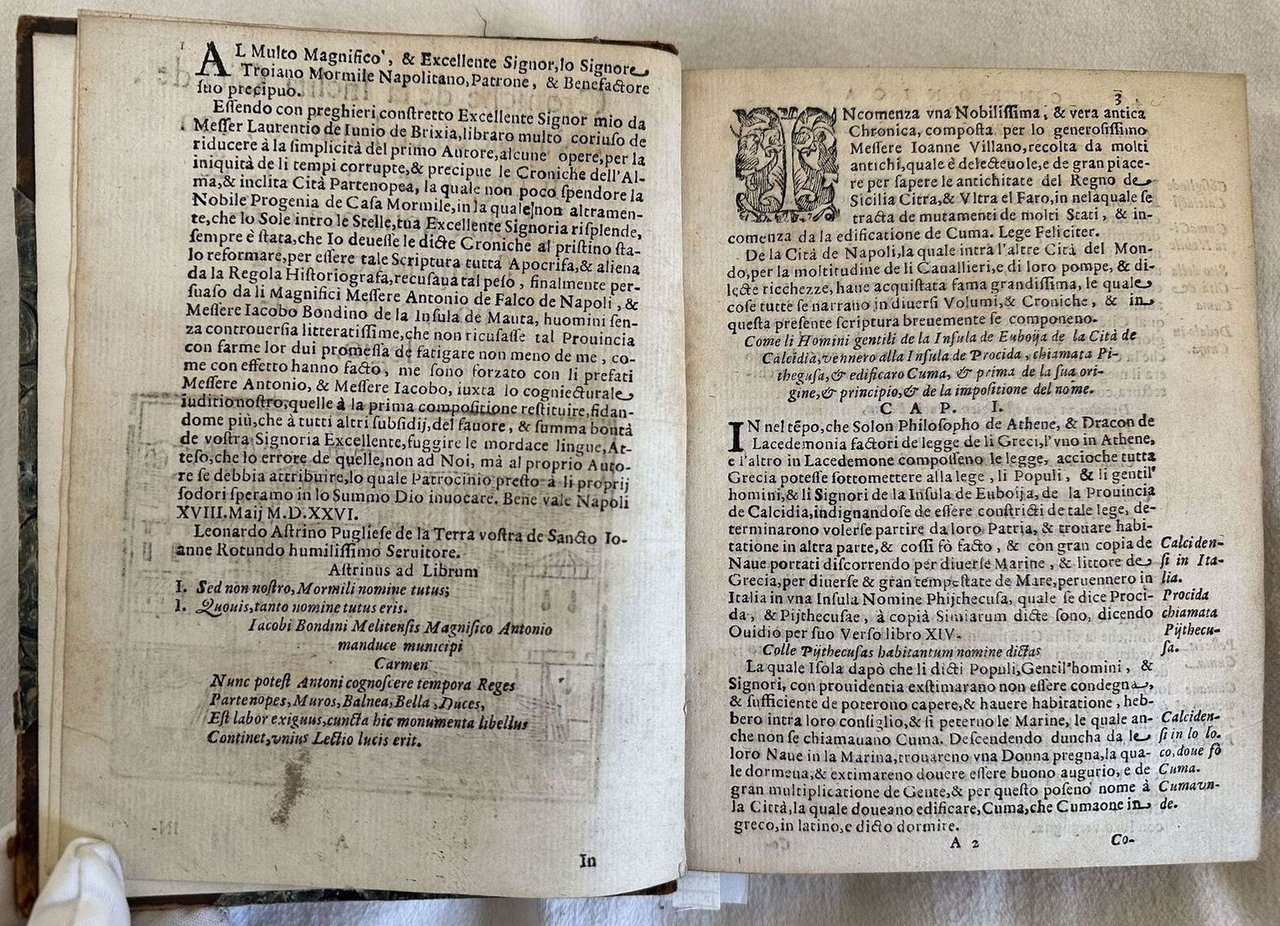 AL Multo Magnifico, & Excellente Signor, lo Signore
Troiano Mormile Napolitano, Patrone, & Benefactore
suo precipuo.
Essendo con preghieri constretto Excellente Signor mio da
Messer Laurentio de Iunio de Brixia, libraro multo coriuso de
riducere à la simplicità del primo Autore, alcune opere, per la
iniquità de li tempi corrupte, & precipue le Croniche dell'Al-
ma, & inclita Cità Partenopea, la quale non poco spendore la
Nobile Progenia de Casa Mormile, in la quale non altramen-
te, che lo Sole intro le Stelle, tua Excellente Signoria risplende,
sempre è stata, che Io deuesse le dicte Croniche al pristino sta-
lo reformare, per essere tale Scriptura tutta Apocrifa, & aliena
da la Regola Historiografa, recusaua tal peso, finalmente per-
suaso da li Magnifici Messere Antonio de Falco de Napoli, &
Messere Iacobo Bondino de la Insula de Mauta, huomini sen-
za controuersia litteratissime, che non ricusasse tal Prouincia
con farme lor dui promessa de fatigare non meno de me, co-
me con effetto hanno facto, me sono forzato con li prefati
Messere Antonio, & Messere Iacobo, iuxta lo cogniecturale
iuditio nostro, quelle à la prima compositione restituire, fidan-
dome più, che à tutti altri subsidij, del fauore, & summa bontà
de vostra Signoria Excellente, fuggire le mordace lingue, At-
teso, che lo errore de quelle, non ad Noi, mà al proprio Auto-
re se debbia attribuire, lo quale Patrocinio presto à li proprij
sodori speramo in lo Summo Dio inuocare. Bene vale Napoli
XVIII. Maij M.D.XXVI.
Leonardo Astrino Pugliese de la Terra vostra de Sancto Io-
anne Rotundo humilissimo Seruitore.
Astrinus ad Librum
I. Sed non nostro, Mormili nomine tutus;
I. Quouis, tanto nomine tutus eris.
Iacobi Bondini Melitensis Magnifico Antonio
manduce municipi
Carmen
Nunc potest Antoni cognoscere tempora Reges
Partenopes, Muros, Balnea, Bella, Duces,
Est labor exiguus, cuncta hic monumenta libellus
Continet, vnius Lectio lucis erit.
In
3
INcomenza vna Nobilissima, & vera antica
Chronica, composta per lo generosissimo
Messere Ioanne Villano, recolta da molti
antichi, quale è delecteuole, e de gran piace-
re per sapere le antichitate del Regno de
Sicilia Citra, & Vltra el Faro, in nelaquale se
tracta de mutamenti de molti Stati, & in-
comenza da la edificatione de Cuma. Lege Feliciter.
De la Cità de Napoli, la quale intrà l'altre Cità del Mon-
do, per la moltitudine de li Cauallieri, e di loro pompe, & di-
lecte ricchezze, haue acquistata fama grandissima, le quale
cose tutte se narrano in diuersi Volumi, & Croniche, & in
questa presente scriptura breuemente se componeno.
Come li Homini gentili de la Insula de Euboija de la Cità de
Calcidia, vennero alla Insula de Procida, chiamata Pi-
thegusa, & edificaro Cuma, & prima de la sua ori-
gine, & principio, & de la impositione del nome.
CAP. I.
IN nel tẽpo, che Solon Philosopho de Athene, & Dracon de
Lacedemonia factori de legge de li Greci, l'vno in Athene,
e l'altro in Lacedemone composseno le legge, accioche tutta
Grecia potesse sottomettere alla lege, li Populi, & li gentil'
homini, & li Signori de la Insula de Euboija, de la Prouincia
de Calcidia, indignandose de essere constricti de tale lege, de-
terminarono volerse partire da loro Patria, & trouare habi-
tatione in altra parte, & cossi fò facto, & con gran copia de
Naue portati discorrendo per diuerse Marine, & littore de
Grecia, per diuerse & gran tempestate de Mare, peruennero in
Italia in vna Insula Nomine Phijthecusa, quale se dice Proci-
da, & Pijthecusae, à copia Simiarum dicte sono, dicendo
Ouidio per suo Verso libro XIV.
Colle Pijthecusas habitantum nomine dictas
La quale Isola dapò che li dicti Populi, Gentil'homini, &
Signori, con prouidentia exstimarano non essere condegna,
& sufficiente de poterono capere, & hauere habitatione, heb-
bero intra loro consiglio, & si peterno le Marine, le quale an-
che non se chiamauano Cuma. Descendendo duncha da le
loro Naue in la Marina, trouareno vna Donna pregna, la qua-
le dormeua, & extimareno douere essere buono augurio, e de
gran multiplicatione de Gente, & per questo poseno nome à
la Città, la quale doueano edificare, Cuma, che Cumaone in
greco, in latino, e dicto dormire.
Calciden-
si in Ita-
lia.
Procida
chiamata
Pijthecu-
sa.
Calciden-
si in lo lo.
co, doue fò
Cuma.
Cuma vn-
de.
A 2
Co-